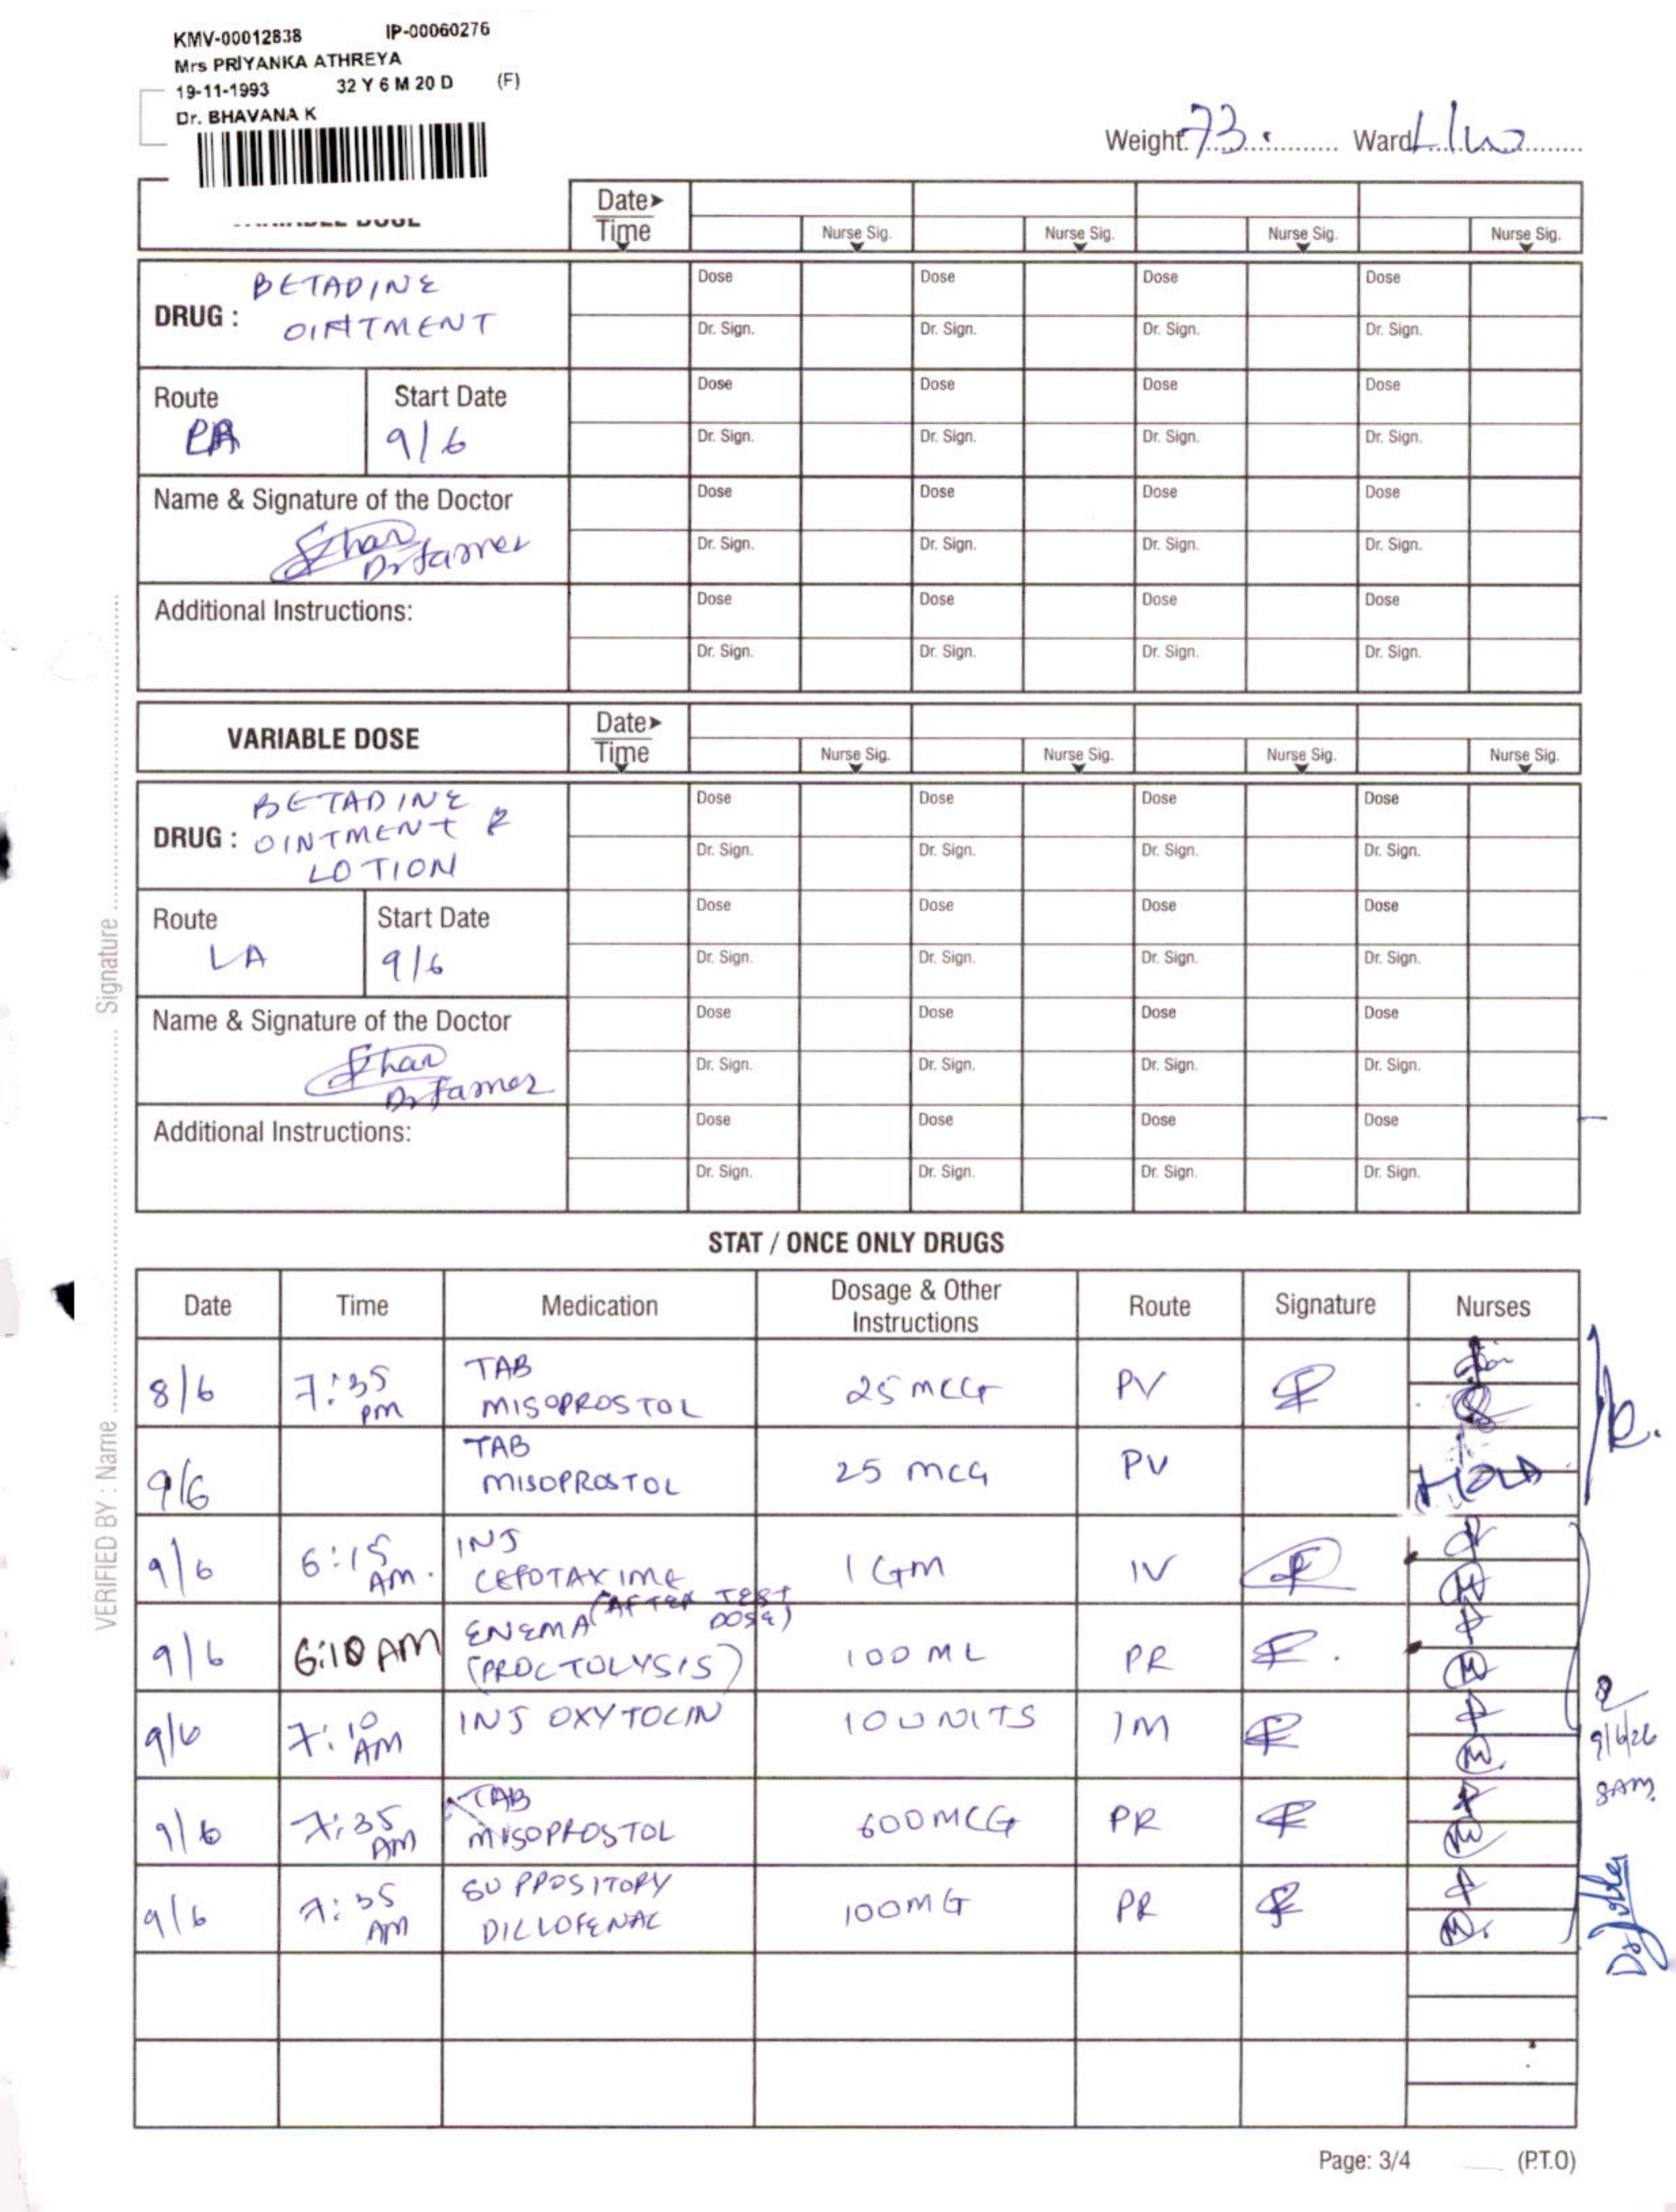 KMV-00012838 IP-00060276
Mrs PRIYANKA ATHREYA
19-11-1993 32 Y 6 M 20 D (F)
Dr. BHAVANA K
Weight: 73. Ward
Date
Time Nurse Sig. Nurse Sig. Nurse Sig. Nurse Sig.
DRUG : BETADINE
OINTMENT
Dose Dose Dose Dose
Dr. Sign. Dr. Sign. Dr. Sign. Dr. Sign.
Route Start Date
Dose Dose Dose Dose
9/6
Dr. Sign. Dr. Sign. Dr. Sign. Dr. Sign.
Name & Signature of the Doctor
Dose Dose Dose Dose
Dr. Sign. Dr. Sign. Dr. Sign. Dr. Sign.
Additional Instructions:
Dose Dose Dose Dose
Dr. Sign. Dr. Sign. Dr. Sign. Dr. Sign.
VARIABLE DOSE Date
Time Nurse Sig. Nurse Sig. Nurse Sig. Nurse Sig.
DRUG : BETADINE
OINTMENT &
LOTION
Dose Dose Dose Dose
Dr. Sign. Dr. Sign. Dr. Sign. Dr. Sign.
Route Start Date
Dose Dose Dose Dose
LA 9/6
Dr. Sign. Dr. Sign. Dr. Sign. Dr. Sign.
Name & Signature of the Doctor
Dose Dose Dose Dose
Dr. Sign. Dr. Sign. Dr. Sign. Dr. Sign.
Additional Instructions:
Dose Dose Dose Dose
Dr. Sign. Dr. Sign. Dr. Sign. Dr. Sign.
VERIFIED BY : Name Signature
STAT / ONCE ONLY DRUGS
Date Time Medication Dosage & Other Instructions Route Signature Nurses
8/6 7:35 PM TAB MISOPROSTOL 25 MCG PV
9/6 TAB MISOPROSTOL 25 MCG PV HOLD
9/6 6:15 AM. INJ CEFOTAXIME (AFTER TEST DOSE) 1 GM IV
9/6 6:10 AM ENEMA (PROCTOLYSIS) 100 ML PR
9/6 7:10 AM INJ OXYTOCIN 10 UNITS IM
9/6 7:35 AM TAB MISOPROSTOL 600 MCG PR
9/6 7:35 AM SUPPOSITORY DICLOFENAC 100 MG PR
9/6/26
8AM
Page: 3/4 (P.T.O)